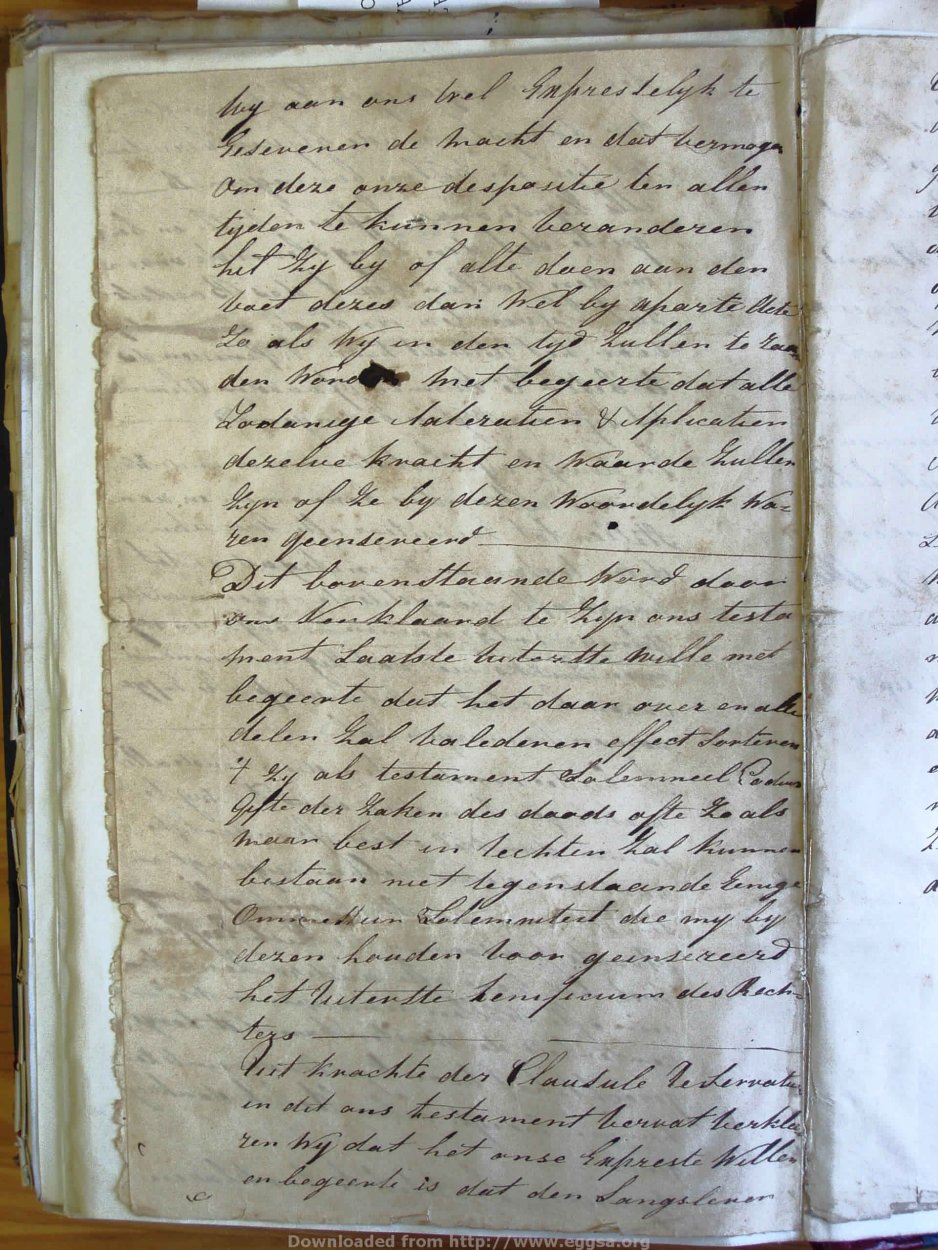 Wy aan ons wel Expresselyk te
Reserveren de macht en dat vermogen
Om deze onze despositie ten allen
tyden te kunnen veranderen
het Zy by of alte doen aan den
voet dezes dan Wel by aparte Acte
Zo als Wy in den tyd Zullen te Raa
den Worden met begeerte dat alle
Zodanige Alteratien & Aplicatien
dezelve kracht en Waarde Zullen
Zyn of Ze by dezen Woordelyk Wa=
ren geensereerd
Dit bovenstaande Werd door
ons Verklaard te Zyn ons testa
ment Laatste uiterste Wille met
begeerte dat het daar over en alle
delen Zal valederen effect Sorteren
't Zy als testament Solemneel Codecus
Gifte der Zaken des doods ofte Zo als
maar best in rechten Zal kunnen
bestaan niet tegenstaande Eenige
Ommessien Solemniteit die my by
dezen houden voor geinsereerd
het Uiterste benificium des Rech=
ters
Uit krachte der Clausule Reservatu
in dit ons testament vervat verkla
ren Wy dat het onse Expreste Willen
en begeerte is dat den Langslever
Downloaded from http://www.eggsa.org